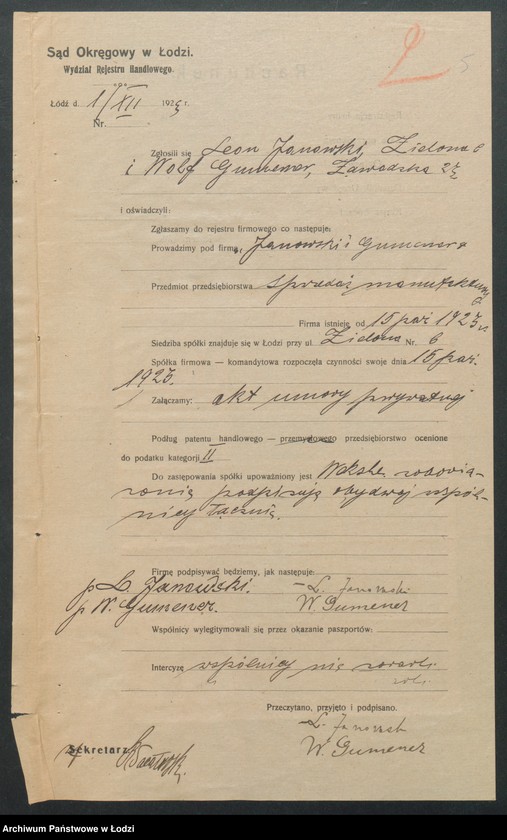 2
5
Sąd Okręgowy w Łodzi.
Wydział Rejestru Handlowego.
Łódź d. 1/XII 1925 r.
Nr.
Zgłosili się Leon Janowski, Zielona 6
i Wolf Gumener, Zawadzka 25
i oświadczyli:
Zgłaszamy do rejestru firmowego co następuje:
Prowadzimy pod firmą „Janowski i Gumener"
Przedmiot przedsiębiorstwa sprzedaż manufaktury
Firma istnieje od 15 paź 1925 r.
Siedziba spółki znajduje się w Łodzi przy ul. Zielona Nr. 6
Spółka firmowa — komandytowa rozpoczęła czynności swoje dnia 15 paź.
1925.
Załączamy: akt umowy prywatnej
Podług patentu handlowego — przemysłowego przedsiębiorstwo ocenione
do podatku kategorji II
Do zastępowania spółki upoważniony jest Weksle, zobowią-
zania podpisują obydwaj wspól-
nicy łącznie.
Firmę podpisywać będziemy, jak następuje:
p L. Janowski. – L. Janowski
p W. Gumener. W. Gumener
Wspólnicy wylegitymowali się przez okazanie paszportów:
Intercyzę wspólnicy nie zawarli
Przeczytano, przyjęto i podpisano.
– L. Janowski
W. Gumener
Sekretarz
Archiwum Państwowe w Łodzi